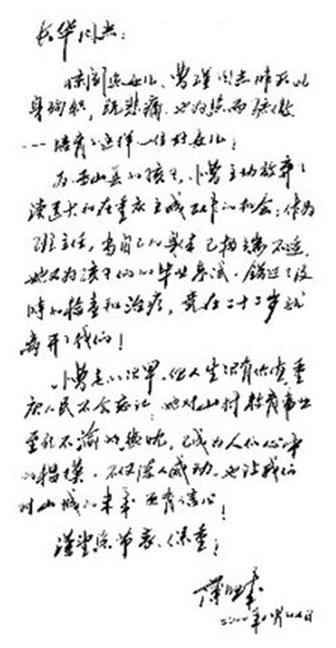 长华同志：
惊闻您女儿、曹瑾同志昨天以
身殉职，既悲痛，也为您而骄傲
---培育了这样一位好女儿！
为巫山县的孩子，小曹主动放弃了
读重大和在重庆主城工作的机会；作为
班主任，当自己的身体已极端不适，
她又为孩子们的毕业考试，错过了及
时的检查和治疗，竟在二十二岁就
离开了我们！
小曹走的很早，但人生没有虚度，重
庆人民不会忘记；她对山村教育事业
不渝的，已成为人们心中
的楷模，不仅感动，也让我们
对山城的未来更有信心！
谨望您节哀、保重！
薄熙来